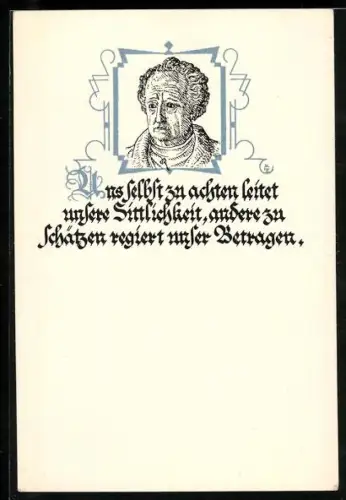 Uns selbst zu achten leitet
unsere Sittlichkeit, andere zu
schätzen regiert unser Betragen.